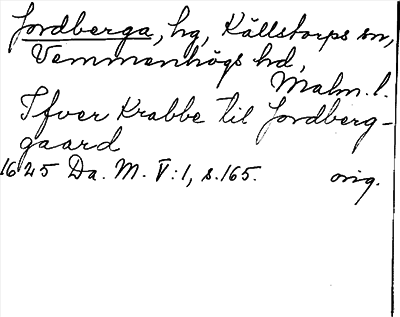 Jordberga, hg, Källstorps sn,
Vemmenhögs hd,
Malm. l.
Ifver Krabbe til Jordberg-
gaard
1625 Da. M. V:1, s.165. orig.